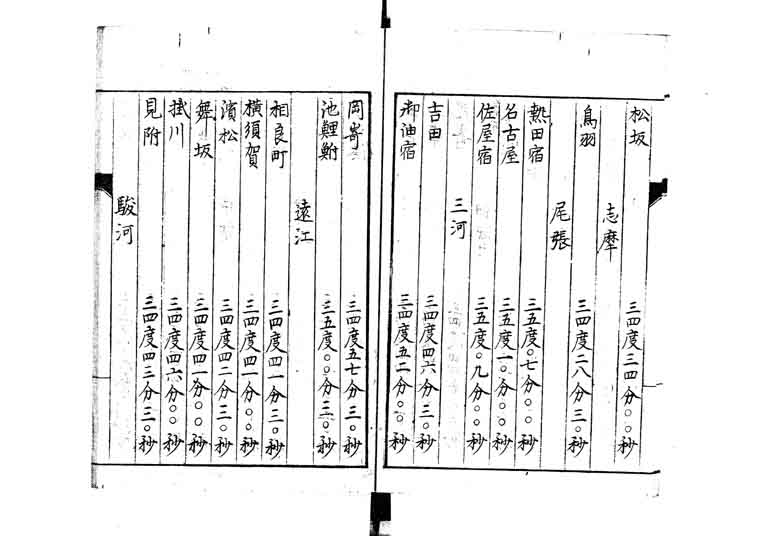 松坂 三四度三四分〇〇秒
志摩
鳥羽 三四度二八分三〇秒
尾張
熱田宿 三五度〇七分〇〇秒
名古屋 三五度一〇分〇〇秒
佐屋宿 三五度〇九分〇〇秒
三河
吉田 三四度四六分三〇秒
御油宿 三四度五二分〇〇秒
岡嵜 三四度五七分三〇秒
池鯉鮒 三五度〇〇分三〇秒
遠江
相良町 三四度四一分三〇秒
横須賀 三四度四一分〇〇秒
濱松 三四度四二分三〇秒
舞坂 三四度四一分〇〇秒
掛川 三四度四六分〇〇秒
見附 三四度四三分三〇秒
駿河